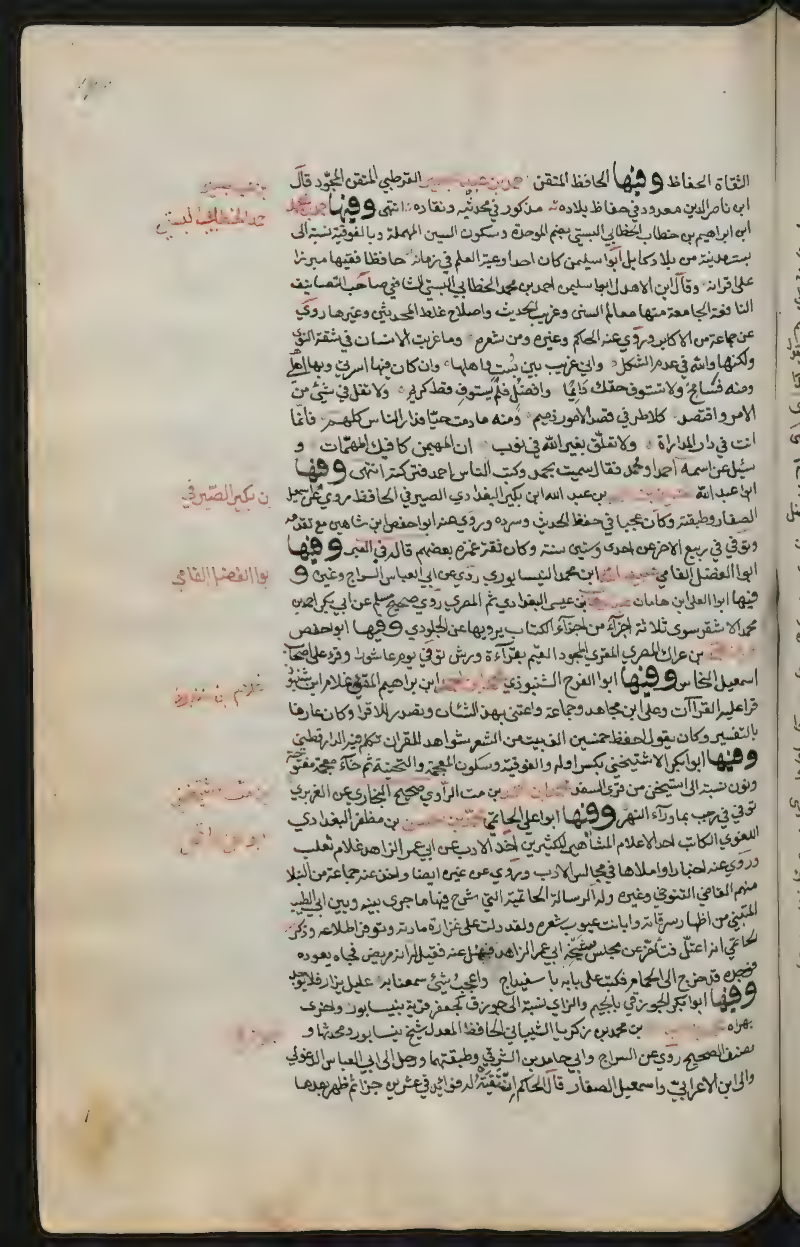 الثقاة الحفاظ وفيها الحافظ المتقن القرطبي المتقن المجود قال
ابن ناصر الدين معدود في حفاظ بلاده مذكور في محدثيه ونقاده انتهى وفيها
ابن ابراهيم بن خطاب الخطابي البستي بضم الموحدة وسكون السين المهملة وبالفوقية نسبة الى
بست مدينة من بلاد كابل ابوا سليمن كان احد اوعية العلم في زمانه حافظا فقيها مبرزا
على اقرانه وقال ابن الاهدل ابوا سليمن احمد بن محمد الخطابي البستي الشافعي صاحب التصانيف
النافعة الجامعة منها معالم السنن وغريب الحديث واصلاح غلط المحدثين وغيرها روي
عن جماعة من الاكابر وروي عنه الحاكم وغيره ومن شعره وما غربت الانسان في شقة النوى
ولكنها والله في عدم الشكل واني غريب بين بست واهلها وان كان فيها اسرتي وبها اهلي
ومنه فسامح ولا تستوف حقك دايما وافضل فلم يستوف قط كريم ولا تغل في شئ من
الامر واقتصد كلا طرفي قصد الامور ذميم ومنه ما دمت حيا فدار الناس كلهم فانما
انت في دار المداراة ولا تعلق بغير الله في نوب ان المهيمن كافيك المهمات و
سئل عن اسمه احمد او حمد فقال سميت بحمد وكتب الناس احمد فتركته انتهى وفيها
ابن عبد الله بن عبد الله ابن بكير البغدادي الصيرفي الحافظ روي عن اسمعيل
بن بكير الصيرفي
الصفار وطبقته وكان عجبا في حفظ الحديث وسرده وروي عنه ابوا حفص ابن شاهين مع تقدمه
وتوفي في ربيع الاخر عن احدى وستين سنة وكان ثقة غمزه بعضهم قاله في العبر وفيها
ابوا الفضل الفامي ابن محمد النيسابوري روي عن ابي العباس السراج وغيره و
بوا الفضل الفامي
فيها ابوا العلا ابن ماهان بن عيسى البغدادي ثم المصري روي صحيح مسلم عن ابي بكر احمد بن
محمد الاشقر سوى ثلاثة اجزاء من اجزاء الكتاب يرويها عن الجلودي وفيها ابو حفص
بن عراك المصري المقري المجود القيم بقراءة ورش توفي يوم عاشورا وقرا على اصحاب
اسمعيل النحاس وفيها ابوا الفرج الشنبوذي ابن ابراهيم المقري غلام ابن شنبوذ
قرا عليه القراآت وعلى ابن مجاهد وجماعة واعتنى بهذا الشان وتصدر للاقرا وكان عارفا
بالتفسير وكان يقول احفظ خمسين الف بيت من الشعر شواهد للقران تكلم فيه الدارقطني
وفيها ابوا بكر الاشتيخني بكسر اوله والفوقية وسكون المعجمة والتحتية ثم خاء معجمة مفتوحة
ونون نسبة الى اشتيخن من قرى السغد بن مت الراوي صحيح البخاري عن الفربري
توفي في رجب بما وراء النهر وفيها ابوا علي الحاتمي بن مظفر البغدادي
اللغوي الكاتب احد الاعلام المشاهير المكثرين اخذ الادب عن ابي عمر الزاهد غلام ثعلب
وروي عنه اخبارا واملاها في مجالس الادب وروي عن غيره ايضا واخذ عنه جماعة من النبلا
منهم القاضي التنوخي وغيره وله الرسالة الحاتمية التي شرح فيها ما جرى بينه وبين ابي الطيب
المتنبي من اظهار سرقاته وابانت عيوب شعره ولقد دلت على غزارة مادته وتوفر اطلاعه وذكر
الحاتمي انه اعتل فتاخر عن مجلس شيخه ابي عمر الزاهد فسئل عنه فقيل له انه مريض فجاه يعوده
فوجده قد خرج الى الحمام فكتب على بابه باسفيداج واعجب شئ سمعنا به عليل يزار فلا يوجد
وفيها ابوا بكر الجوزقي بالجيم والزاي نسبة الى جوزق كجعفر قرية بنيسابور واخرى
بهراه بن محمد بن زكريا الشيباني الحافظ المعدل شيخ نيسابور ومحدثها و
مصنف الصحيح روي عن السراج وابي حامد بن الشرقي وطبقتهما ورحل الى ابي العباس الدغولي
والى ابن الاعرابي واسمعيل الصفار قال الحاكم انتقيت له فوائد في عشرين جزا ثم ظهر بعدها